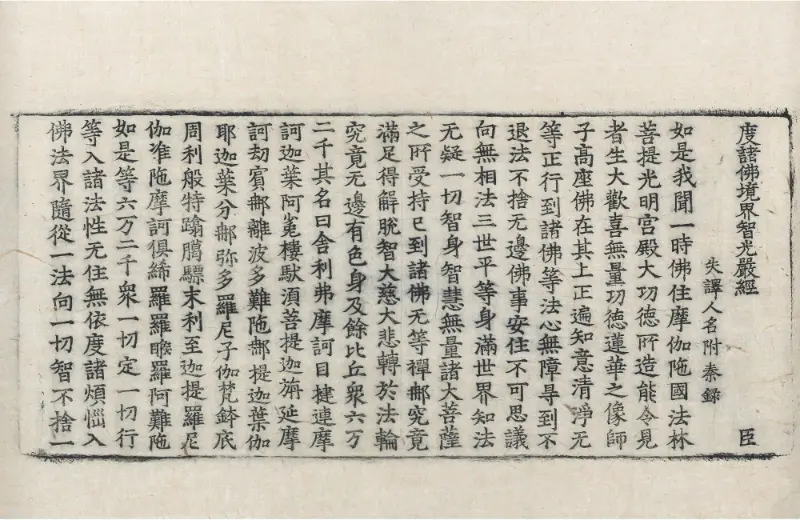 度諸佛境界智光嚴經 臣
失譯人名附秦録
如是我聞一時佛住摩伽陁國法林
菩提光明宮殿大功徳所造能令見
者生大歡喜無量功徳蓮華之像師
子高座佛在其上正遍知意清淨无
等正行到諸佛等法心無障㝵到不
退法不捨无邊佛事安住不可思議
向無相法三世平等身滿世界知法
无疑一切智身智慧無量諸大菩薩
之所受持已到諸佛无等禪郍究竟
滿足得解脫智大慈大悲轉於法輪
究竟无邊有色身及餘比丘衆六万
二千其名曰舍利弗摩訶目揵連摩
訶迦葉阿㝹樓馱湏菩提迦旃延摩
訶劫賓郍離波多難陁郍提迦葉伽
耶迦葉分郍弥多羅尼子伽梵鉢底
周利般特踰䐗驃末利至迦提羅尼
伽准陁摩訶俱絺羅羅睺羅阿難陁
如是等六万二千衆一切定一切行
等入諸法性无住無依度諸煩惱入
佛法界隨從一法向一切智不捨一